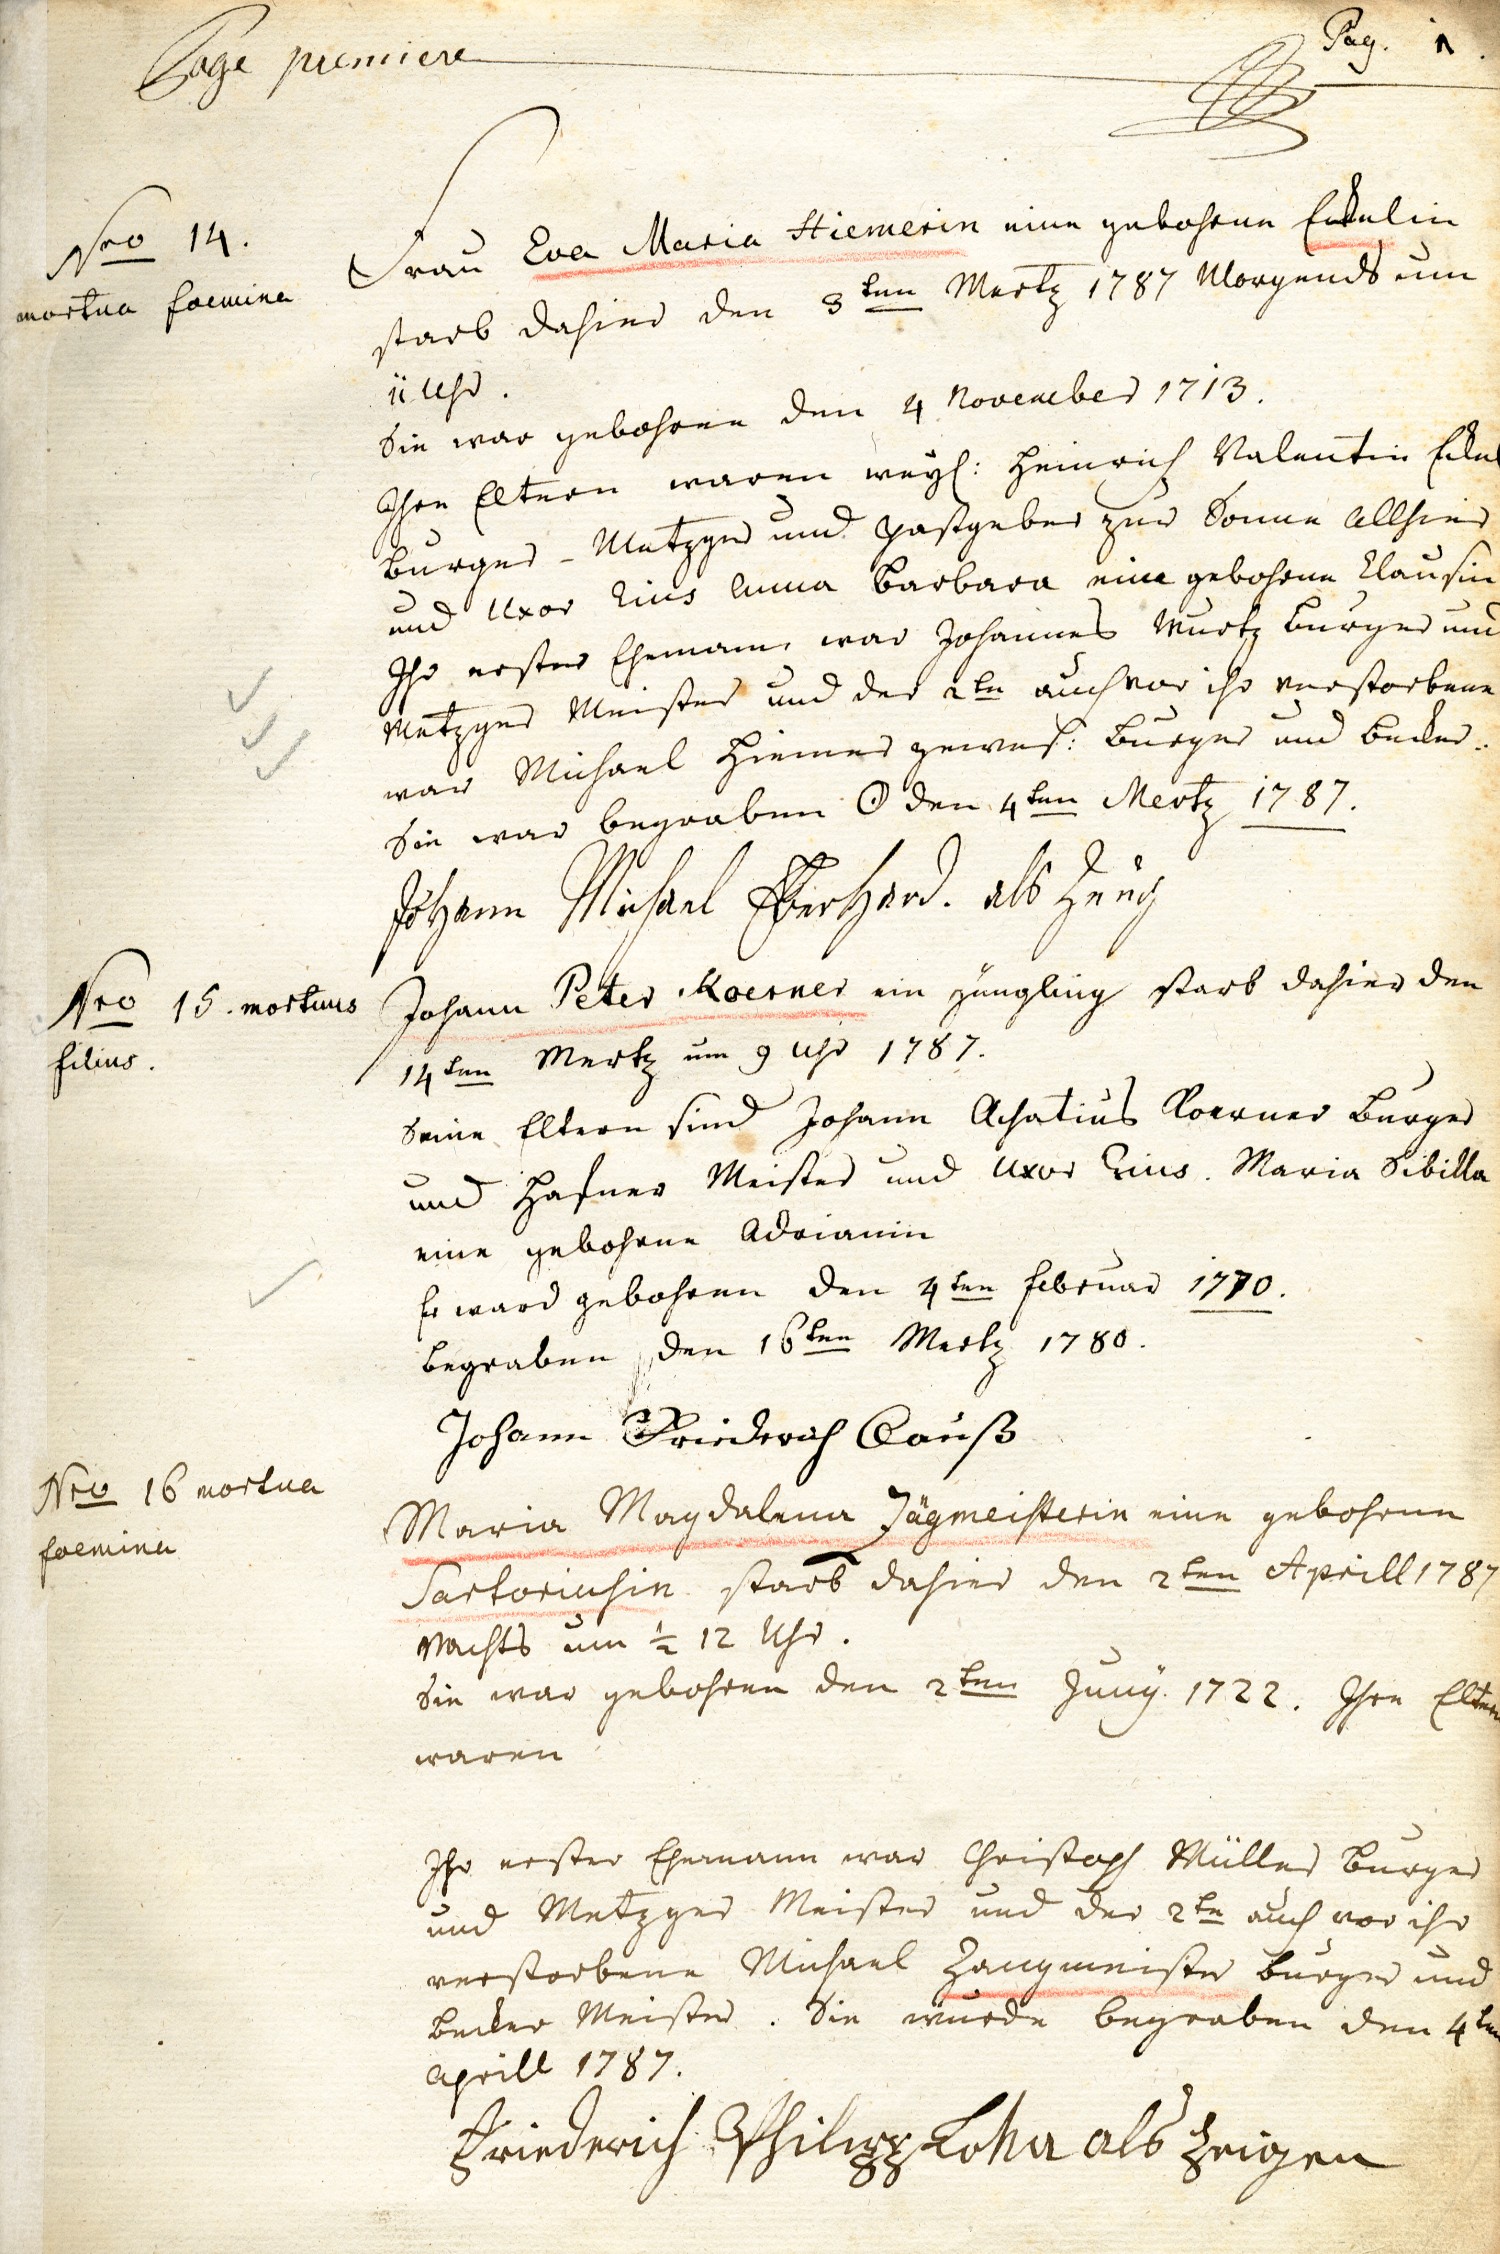 Page premiere
Pag. 1.
Nro 14.
mortua foemina
Frau Eva Maria Hiemerin eine gebohrne Eckelin
starb dahier den 3ten Mertz 1787 Morgends um
11 Uhr.
Sie war gebohren den 4 November 1713.
Ihre Eltern waren weyl: Heinrich Valentin Eckel
Burger - Metzger und Gastgeber zur Sonne allhier
und Uxor Eius Anna Barbara eine gebohrne Clausin
Ihr erster Ehemann war Johannes Wurtz Burger und
Metzger Meister und der 2te auch vor ihr verstorbene
war Michael Hiemer gewes: Burger und Becker.
Sie war begraben den 4ten Mertz 1787.
Johann Michael Eberhard. als Zeug
Nro 15. mortuus
filius.
Johann Peter Koerner ein Jüngling starb dahier den
14ten Mertz um 9 Uhr 1787.
Seine Eltern sind Johann Achatius Koerner Burger
und Hafner Meister und Uxor Eius. Maria Sibilla
eine gebohrne Adrianin
Er ward gebohren den 4ten Februar 1770.
begraben den 16ten Mertz 1780.
Johann Friederich Clauß
Nro 16 mortua
foemina
Maria Magdalena Jägmeisterin eine gebohrne
Sartoriusin starb dahier den 2ten Aprill 1787
Nachts um ½ 12 Uhr.
Sie war gebohren den 2ten Juny. 1722. Ihre Eltern
waren
Ihr erster Ehemann war Christoph Müller Burger
und Metzger Meister und der 2te auch vor ihr
verstorbene Michael Zangmeister Burger und
Becker Meister. Sie wurde begraben den 4ten
Aprill 1787.
Friederich Philipp als Zeigen